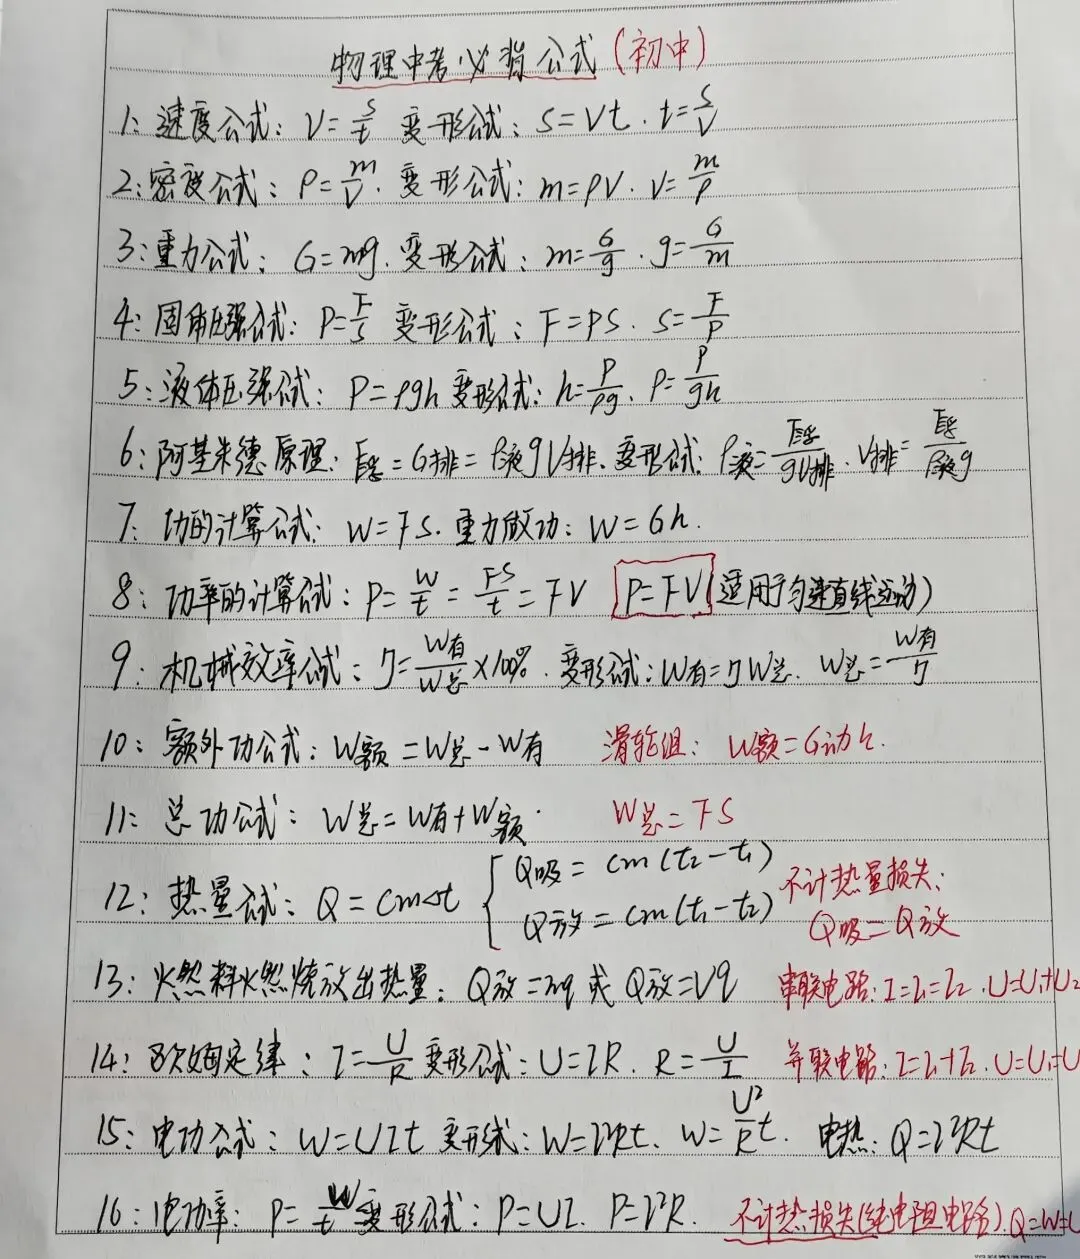 物理中考必背公式(初中)
1: 速度公式: V=s/t 变形公式: S=Vt. t=s/V
2: 密度公式: ρ=m/V. 变形公式: m=ρV. V=m/ρ
3: 重力公式: G=mg. 变形公式: m=G/g. g=G/m
4: 固体压强公式: P=F/S 变形公式: F=PS. S=F/P
5: 液体压强公式: P=ρgh 变形公式: h=P/ρg. ρ=P/gh
6: 阿基米德原理: F浮=G排=ρ液gV排. 变形公式: ρ液=F浮/gV排. V排=F浮/ρ液g
7: 功的计算公式: W=FS. 重力做功: W=Gh.
8: 功率的计算公式: P=W/t=FS/t=FV P=FV(适用于匀速直线运动)
9: 机械效率公式: η=W有/W总×100%. 变形公式: W有=ηW总. W总=W有/η
10: 额外功公式: W额=W总-W有 滑轮组: W额=G动h.
11: 总功公式: W总=W有+W额. W总=FS
12: 热量公式: Q=cmΔt { Q吸=cm(t₂-t₁) 不计热量损失:
Q放=cm(t₁-t₂) Q吸=Q放
13: 燃料燃烧放出热量: Q放=mq 或 Q放=Vq 串联电路: I=I₁=I₂. U=U₁+U₂
14: 欧姆定律: I=U/R 变形公式: U=IR. R=U/I 并联电路: I=I₁+I₂. U=U₁=U
15: 电功公式: W=UIt 变形式: W=I²Rt. W=U²/R t. 电热: Q=I²Rt
16: 电功率: P=W/t 变形公式: P=UI. P=I²R. 不计热损失(纯电阻电路). Q=W=U